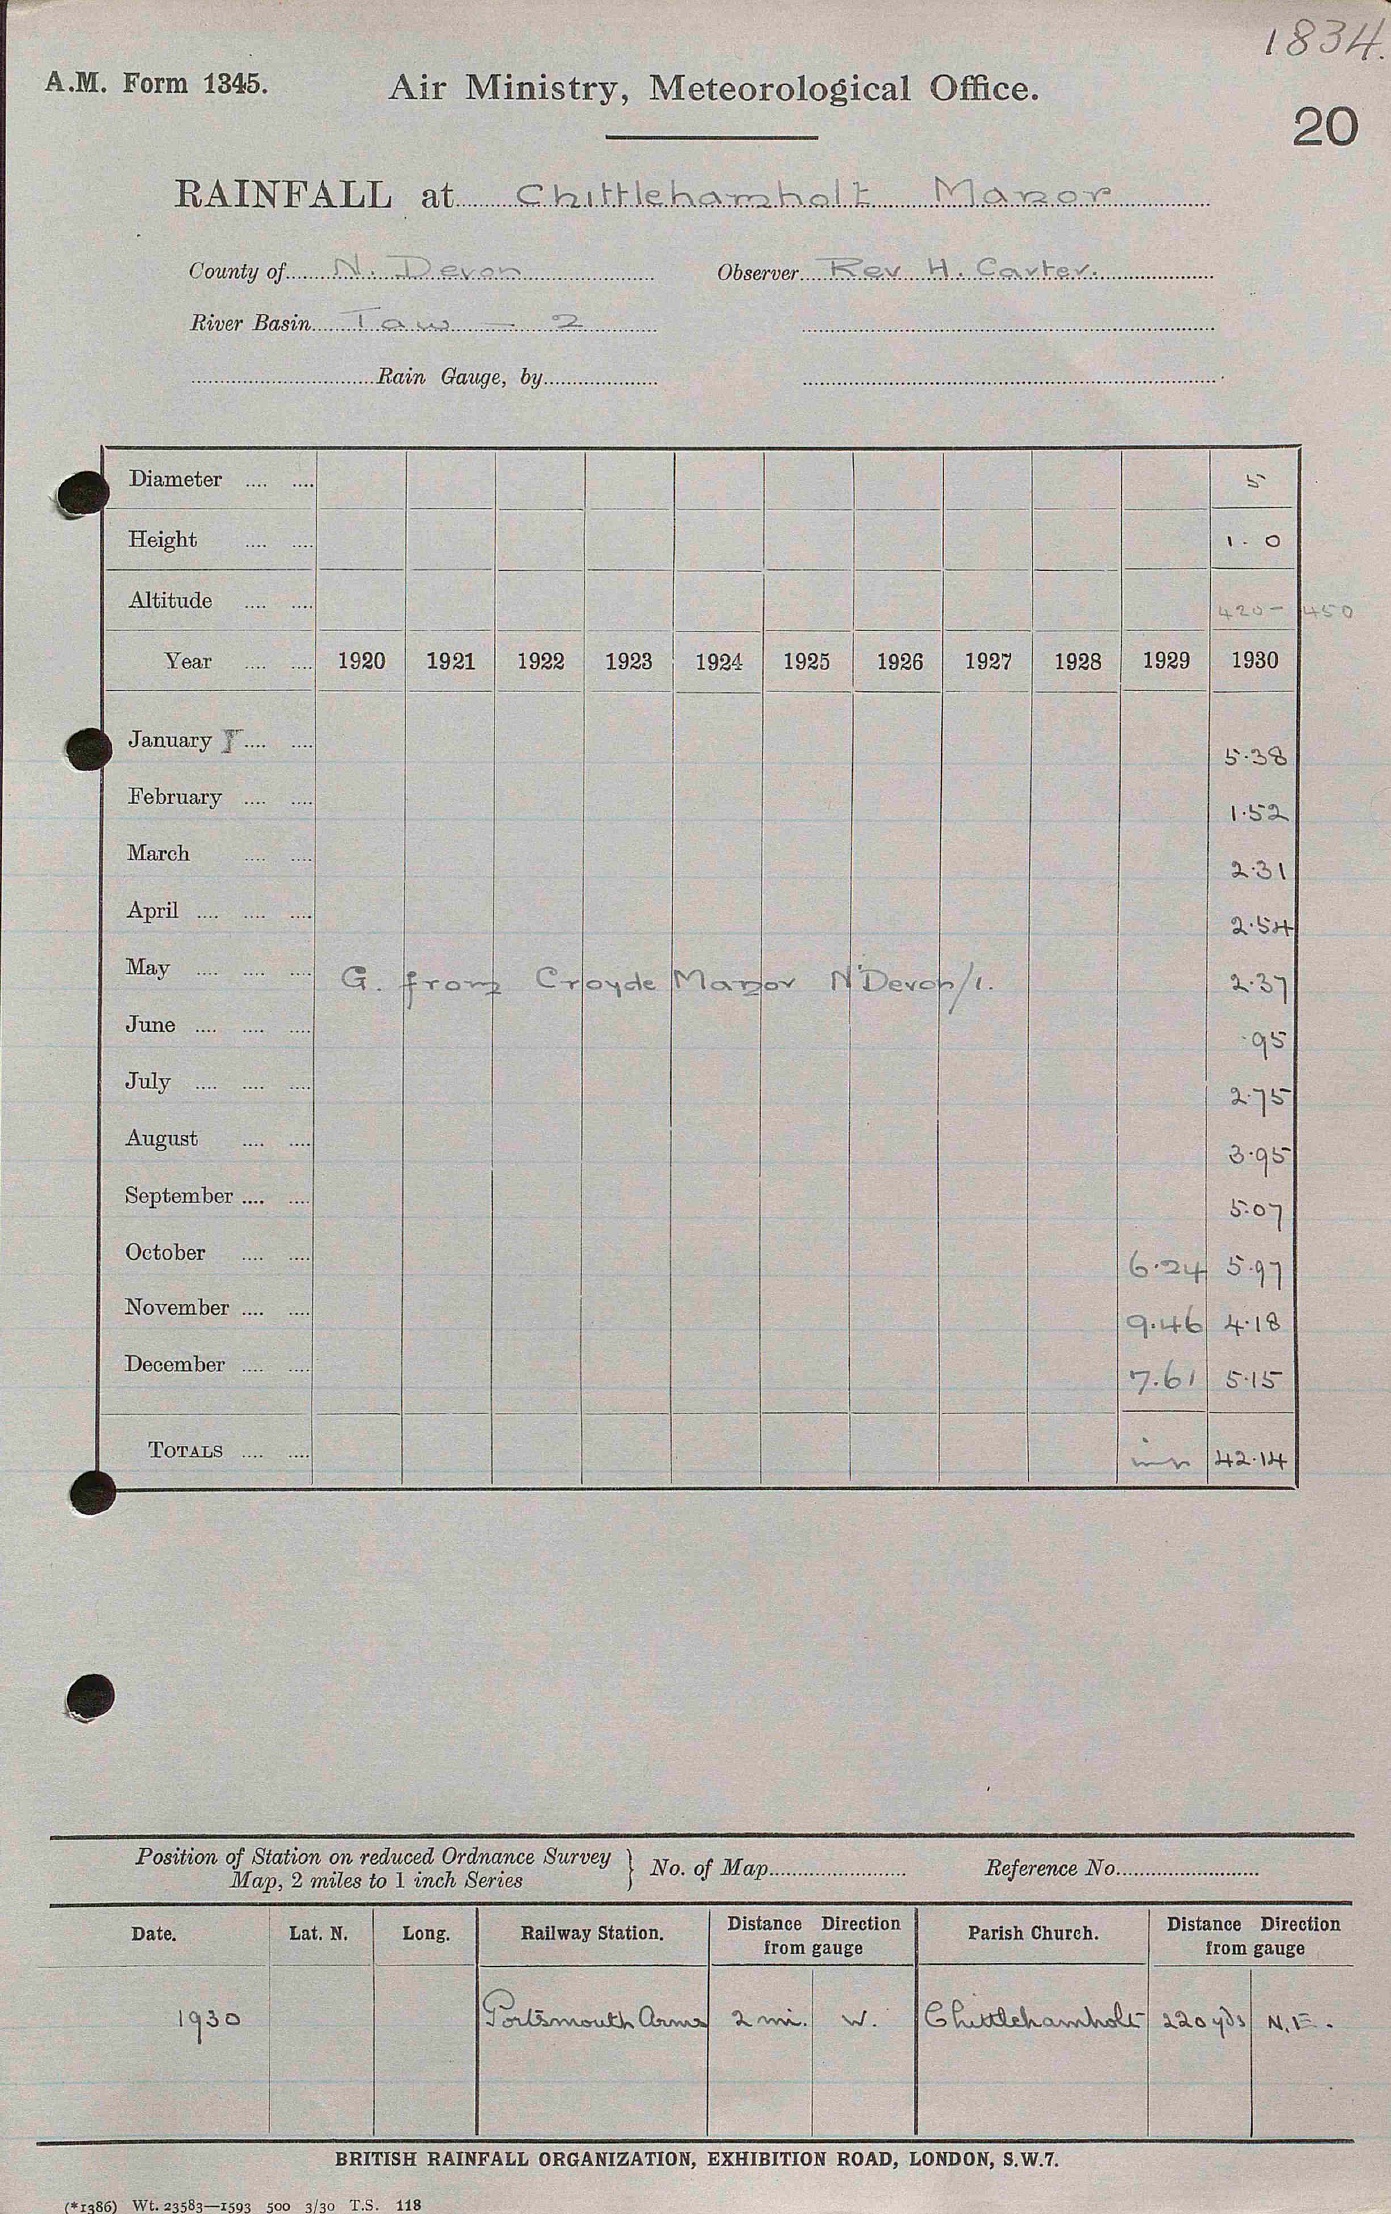 1834.
A.M. Form 1345. Air Ministry, Meteorological Office.
20
RAINFALL at Chittlehamholt Manor
County of N. Devon Observer Rev H. Carter.
River Basin Taw — 2
Rain Gauge, by
Diameter .... .... 5
Height .... .... 1 . 0
Altitude .... .... 420 - 450
Year .... .... 1920 1921 1922 1923 1924 1925 1926 1927 1928 1929 1930
January .... .... 5.38
February .... .... 1.52
March .... .... 2.31
April .... .... .... 2.54
May .... .... .... G. from Croyde Manor N Devon/1. 2.37
June .... .... .... .95
July .... .... .... 2.75
August .... .... 3.95
September .... .... 5.07
October .... .... 6.24 5.97
November .... .... 9.46 4.18
December .... .... 7.61 5.15
TOTALS .... .... 42.14
Position of Station on reduced Ordnance Survey
Map, 2 miles to 1 inch Series } No. of Map Reference No.
Date. Lat. N. Long. Railway Station. Distance Direction from gauge Parish Church. Distance Direction from gauge
1930 Portsmouth Arms 2 mi. W. Chittlehamholt 220 yds N.E.
BRITISH RAINFALL ORGANIZATION, EXHIBITION ROAD, LONDON, S.W.7.
(*1386) Wt. 23583—1593 500 3/30 T.S. 118